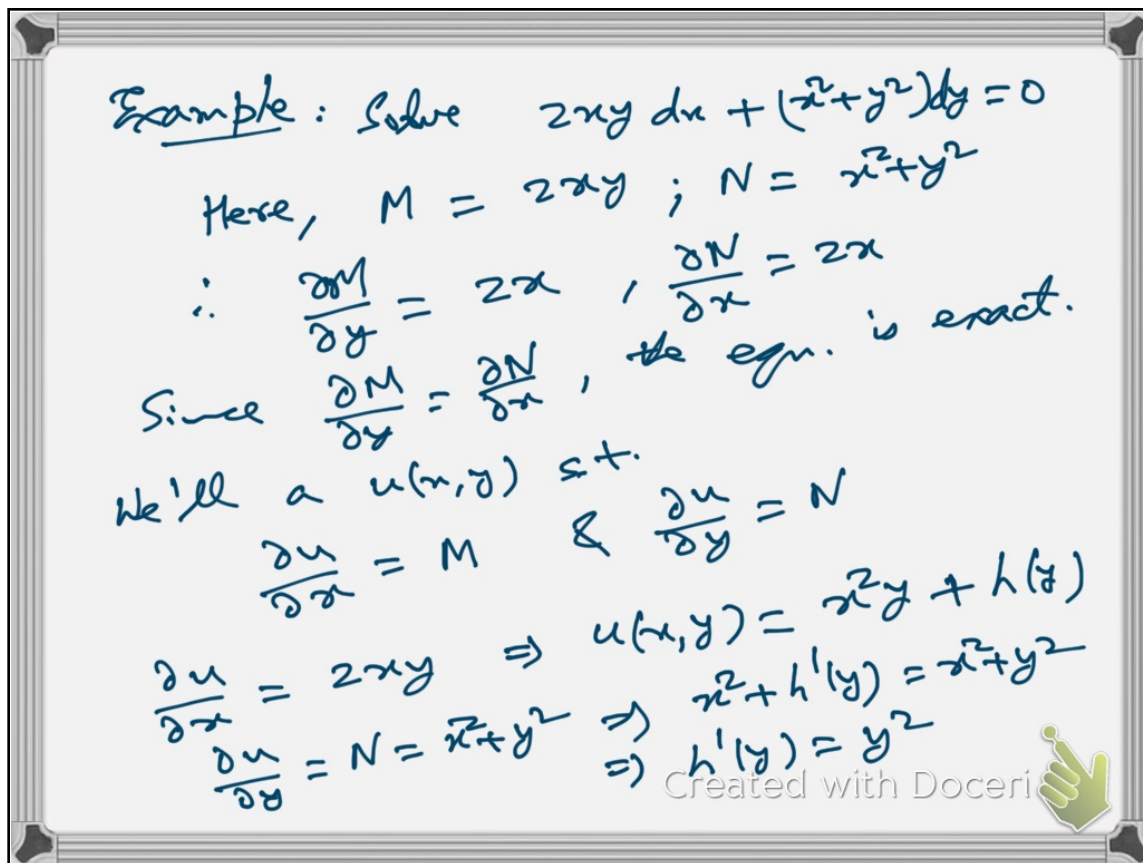 Example: Solve 2xy dx + (x²+y²)dy = 0
Here, M = 2xy ; N = x²+y²
∴ ∂M/∂y = 2x , ∂N/∂x = 2x
Since ∂M/∂y = ∂N/∂x , the eqn. is exact.
We'll a u(x,y) s.t.
∂u/∂x = M & ∂u/∂y = N
∂u/∂x = 2xy ⇒ u(x,y) = x²y + h(y)
∂u/∂y = N = x²+y² ⇒ x²+h'(y) = x²+y²
⇒ h'(y) = y²
Created with Doceri